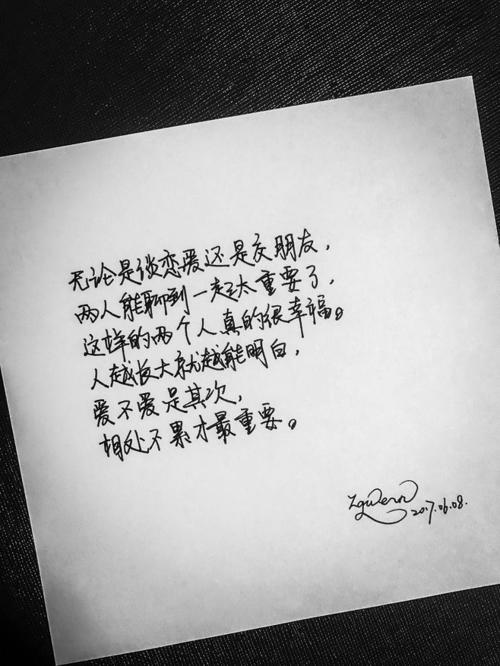 无论是谈恋爱还是交朋友，
两人能聊到一起太重要了，
这样的两个人真的很幸福。
人越长大就越能明白，
爱不爱是其次，
相处不累才最重要。
2017.06.08.